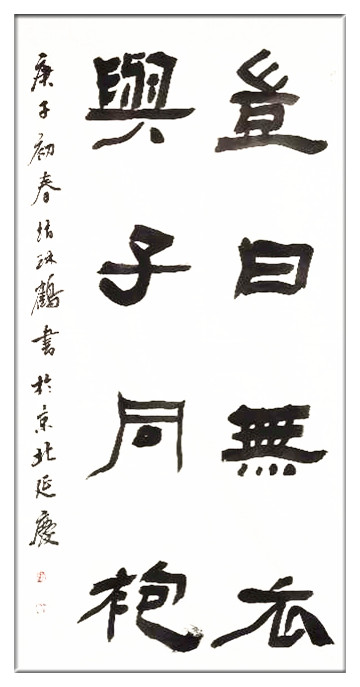 豈曰無衣
與子同袍
庚子初春琳鶴書於京北延慶